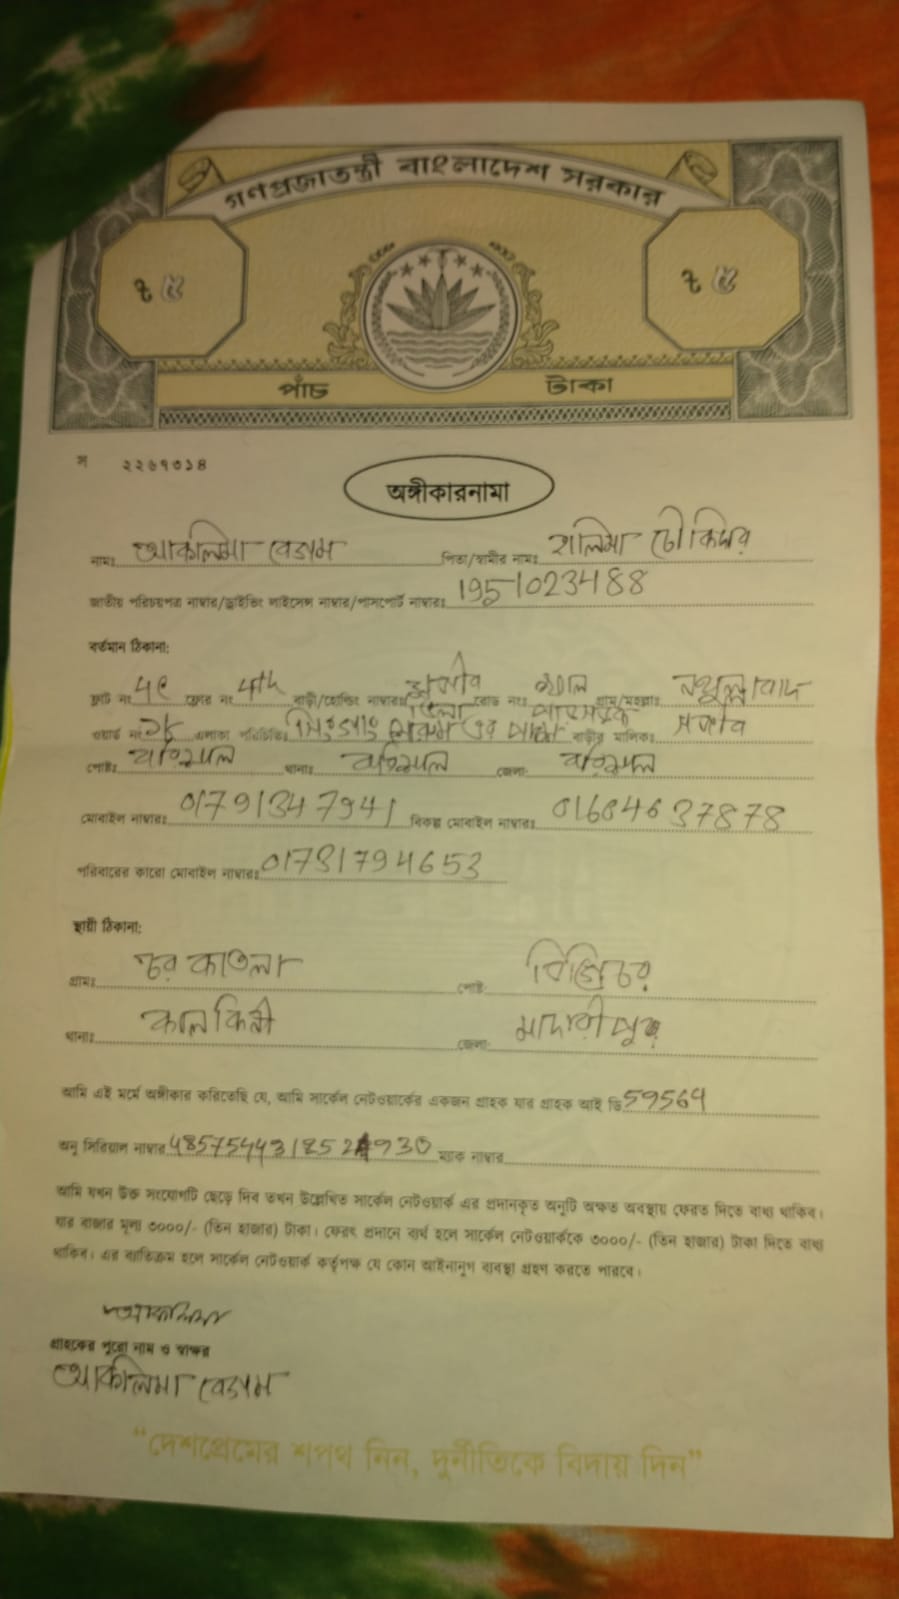 গণপ্রজাতন্ত্রী বাংলাদেশ সরকার
৳ ৫ ৳ ৫
পাঁচ টাকা
স ২২৬৭৩১৪
অঙ্গীকারনামা
নামঃ আকলিমা বেগম পিতা/স্বামীর নামঃ হালিমা চৌকিদার
জাতীয় পরিচয়পত্র নাম্বার/ড্রাইভিং লাইসেন্স নাম্বার/পাসপোর্ট নাম্বারঃ 1951023488
বর্তমান ঠিকানা:
ফ্লাট নং ফ্লোর নং 4th বাড়ী/হোল্ডিং নাম্বারঃ রোড নংঃ গ্রাম/মহল্লাঃ
ভিলা
ওয়ার্ড নং এলাকা পরিচিতিঃ এর পাশে বাড়ীর মালিকঃ সজীব
পোষ্টঃ বরিশাল থানাঃ বরিশাল জেলা: বরিশাল
মোবাইল নাম্বারঃ 01791347941 বিকল্প মোবাইল নাম্বারঃ 01604637878
পরিবারের কারো মোবাইল নাম্বারঃ 01731794653
স্থায়ী ঠিকানা:
গ্রামঃ চর কাতলা পোষ্ট:
থানাঃ কালকিনী জেলা: মাদারীপুর
আমি এই মর্মে অঙ্গীকার করিতেছি যে, আমি সার্কেল নেটওয়ার্কের একজন গ্রাহক যার গ্রাহক আই ডি 59564
অনু সিরিয়াল নাম্বার ম্যাক নাম্বার
আমি যখন উক্ত সংযোগটি ছেড়ে দিব তখন উল্লেখিত সার্কেল নেটওয়ার্ক এর প্রদানকৃত অনুটি অক্ষত অবস্থায় ফেরত দিতে বাধ্য থাকিব।
যার বাজার মূল্য ৩০০০/- (তিন হাজার) টাকা। ফেরৎ প্রদানে ব্যর্থ হলে সার্কেল নেটওয়ার্ককে ৩০০০/- (তিন হাজার) টাকা দিতে বাধ্য
থাকিব। এর ব্যতিক্রম হলে সার্কেল নেটওয়ার্ক কর্তৃপক্ষ যে কোন আইনানুগ ব্যবস্থা গ্রহণ করতে পারবে।
আকলিমা
গ্রাহকের পুরো নাম ও স্বাক্ষর
আকলিমা বেগম
“দেশপ্রেমের শপথ নিন, দুর্নীতিকে বিদায় দিন”